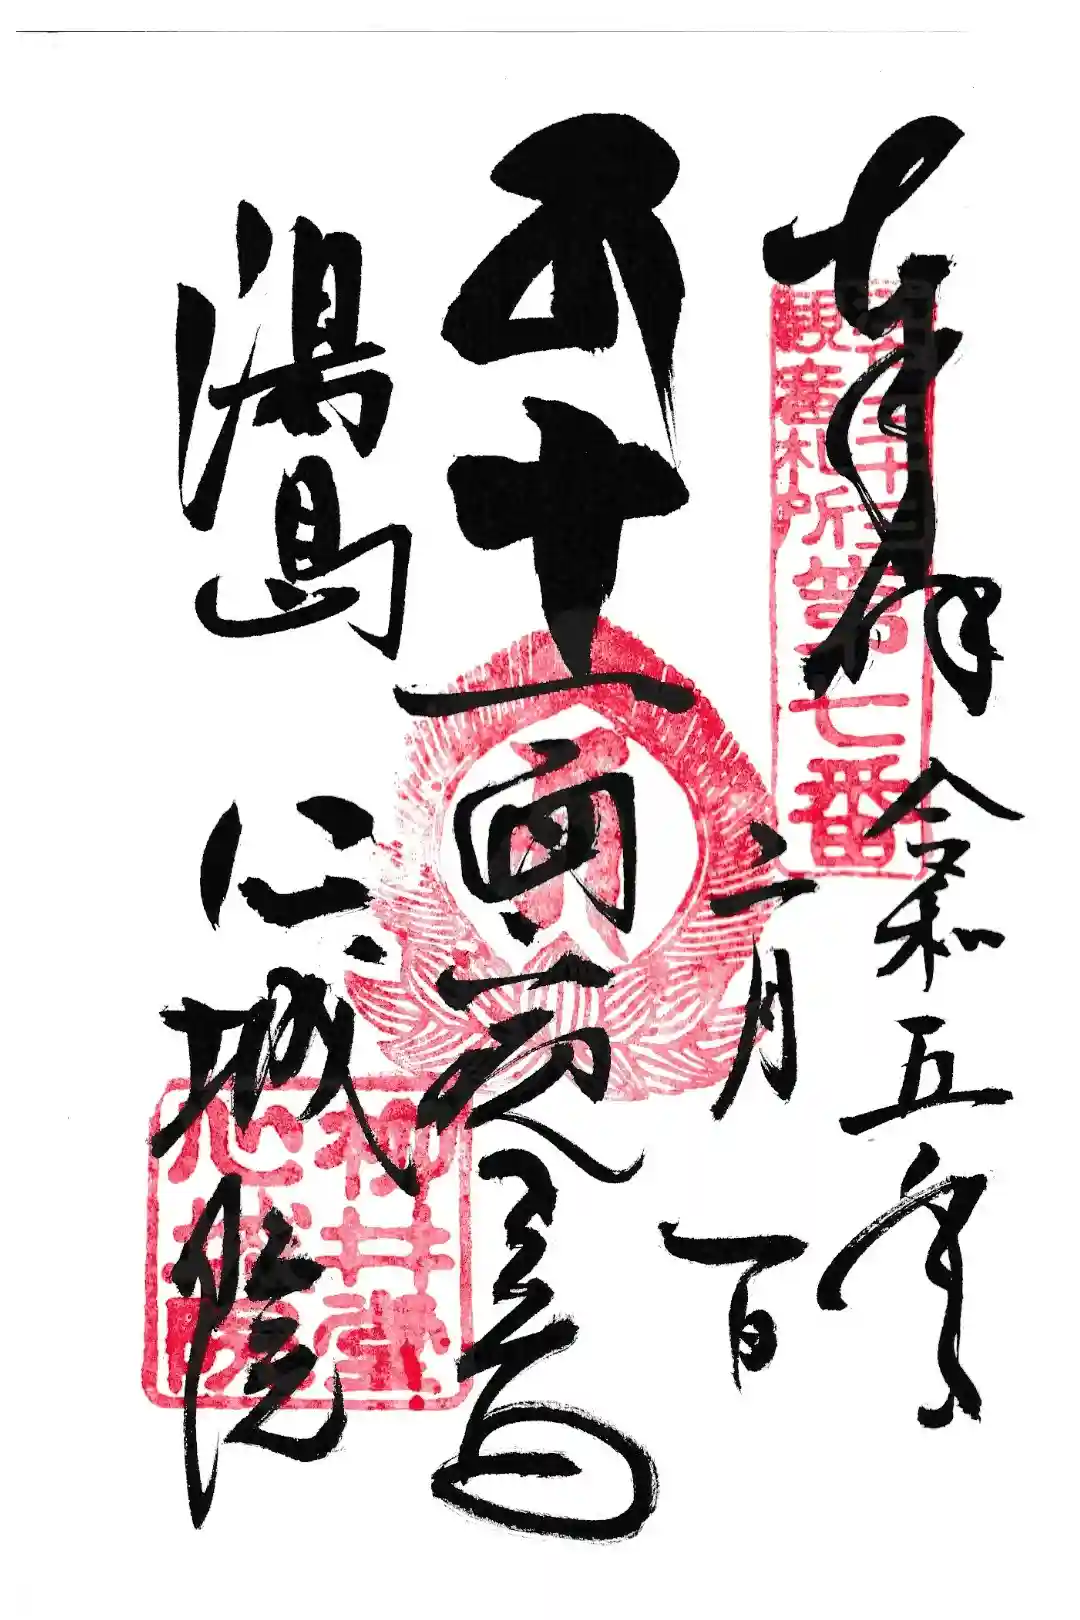 奉拝
令和五年
二月一日
十一面
湯島
心城院
江戸三十三
観音札所第七番
柳井堂
心城院